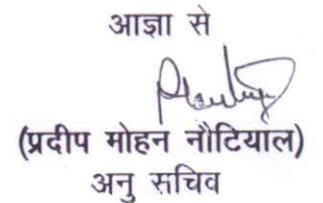 आज्ञा से
(प्रदीप मोहन नौटियाल)
अनु सचिव